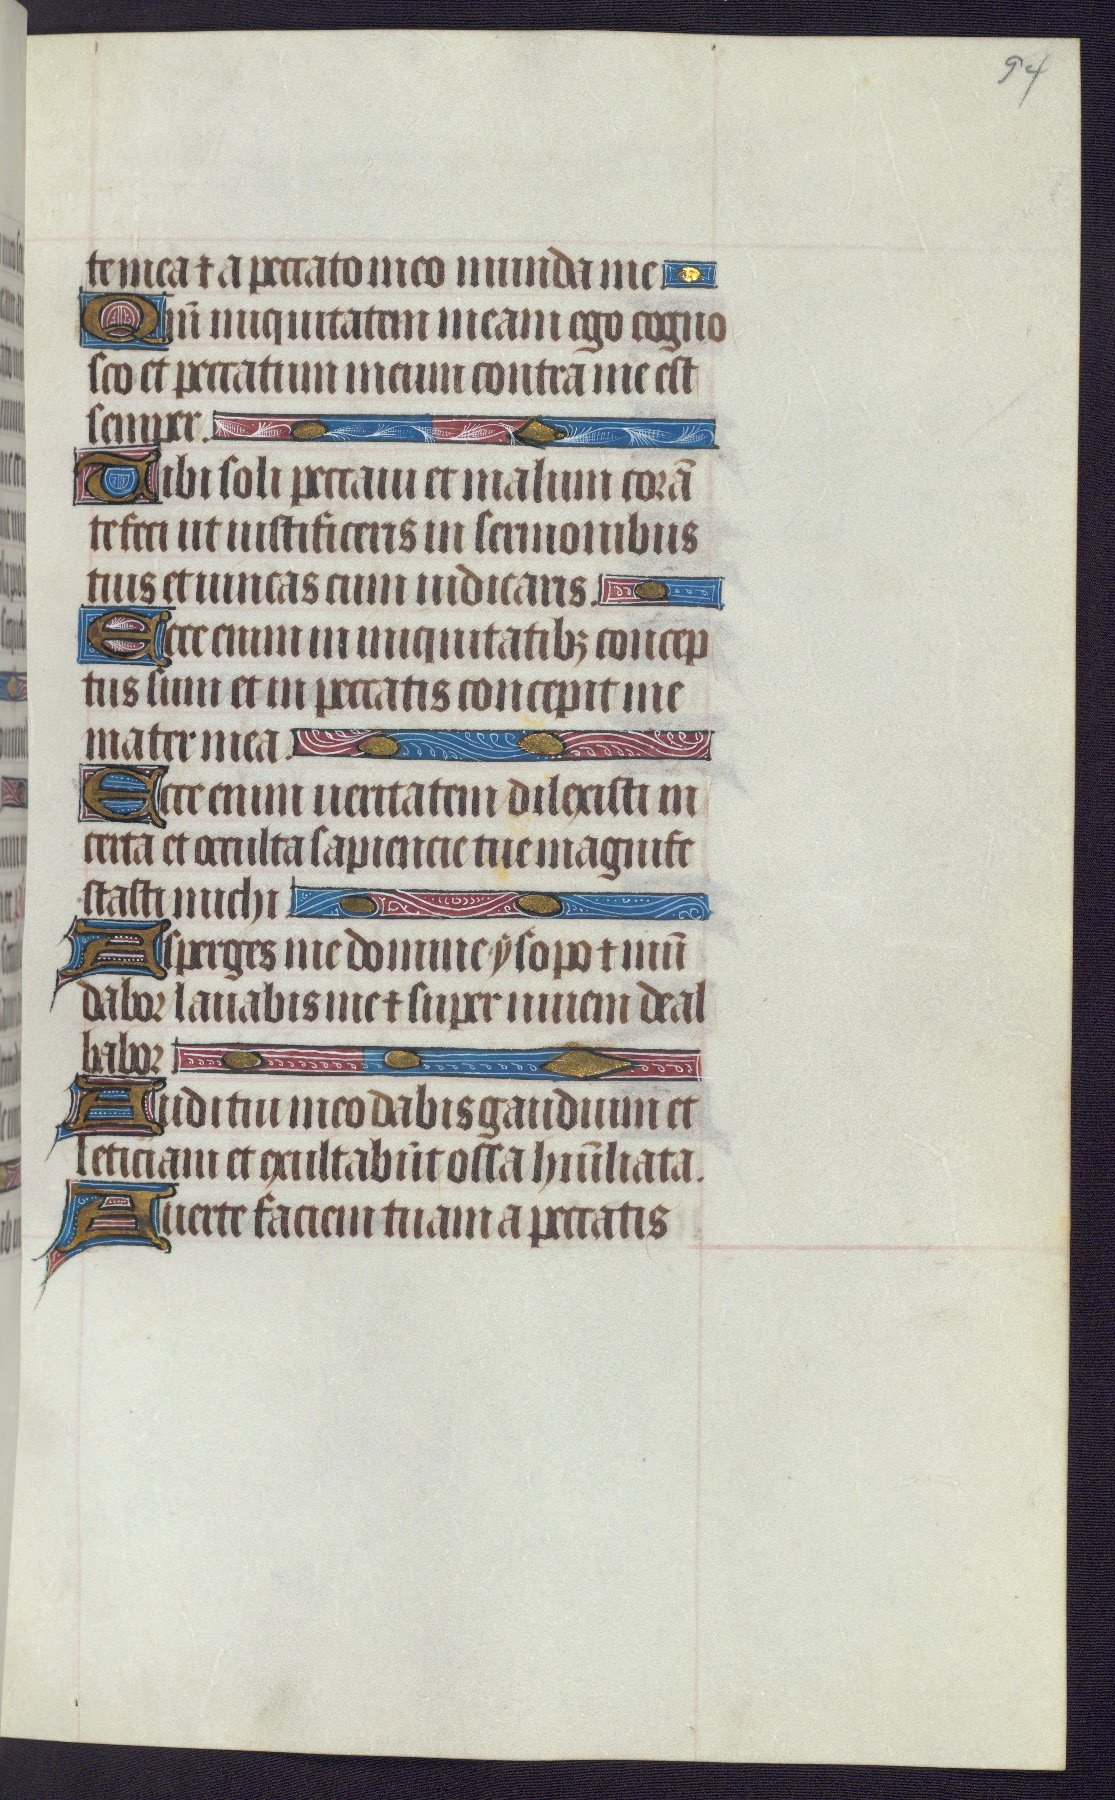 94
te mea ⁊ a peccato meo munda me
Qm̄ iniquitatem meam ego cogno
sco et peccatum meum contra me est
semper.
Tibi soli peccaui et malum corā
te feci ut iustificeris in sermonibus
tuis et uincas cum iudicaris.
Ecce enim in iniquitatibꝫ concep
tus sum et in peccatis concepit me
mater mea.
Ecce enim ueritatem dilexisti in
certa et occulta sapiencie tue magnife
stasti michi
Asperges me domine ẏsopo ⁊ mū
dabor lauabis me ⁊ super niuem deal
babor
Auditui meo dabis gaudium et
leticiam et exultabūt ossa hūiliata.
Auerte faciem tuam a peccatis